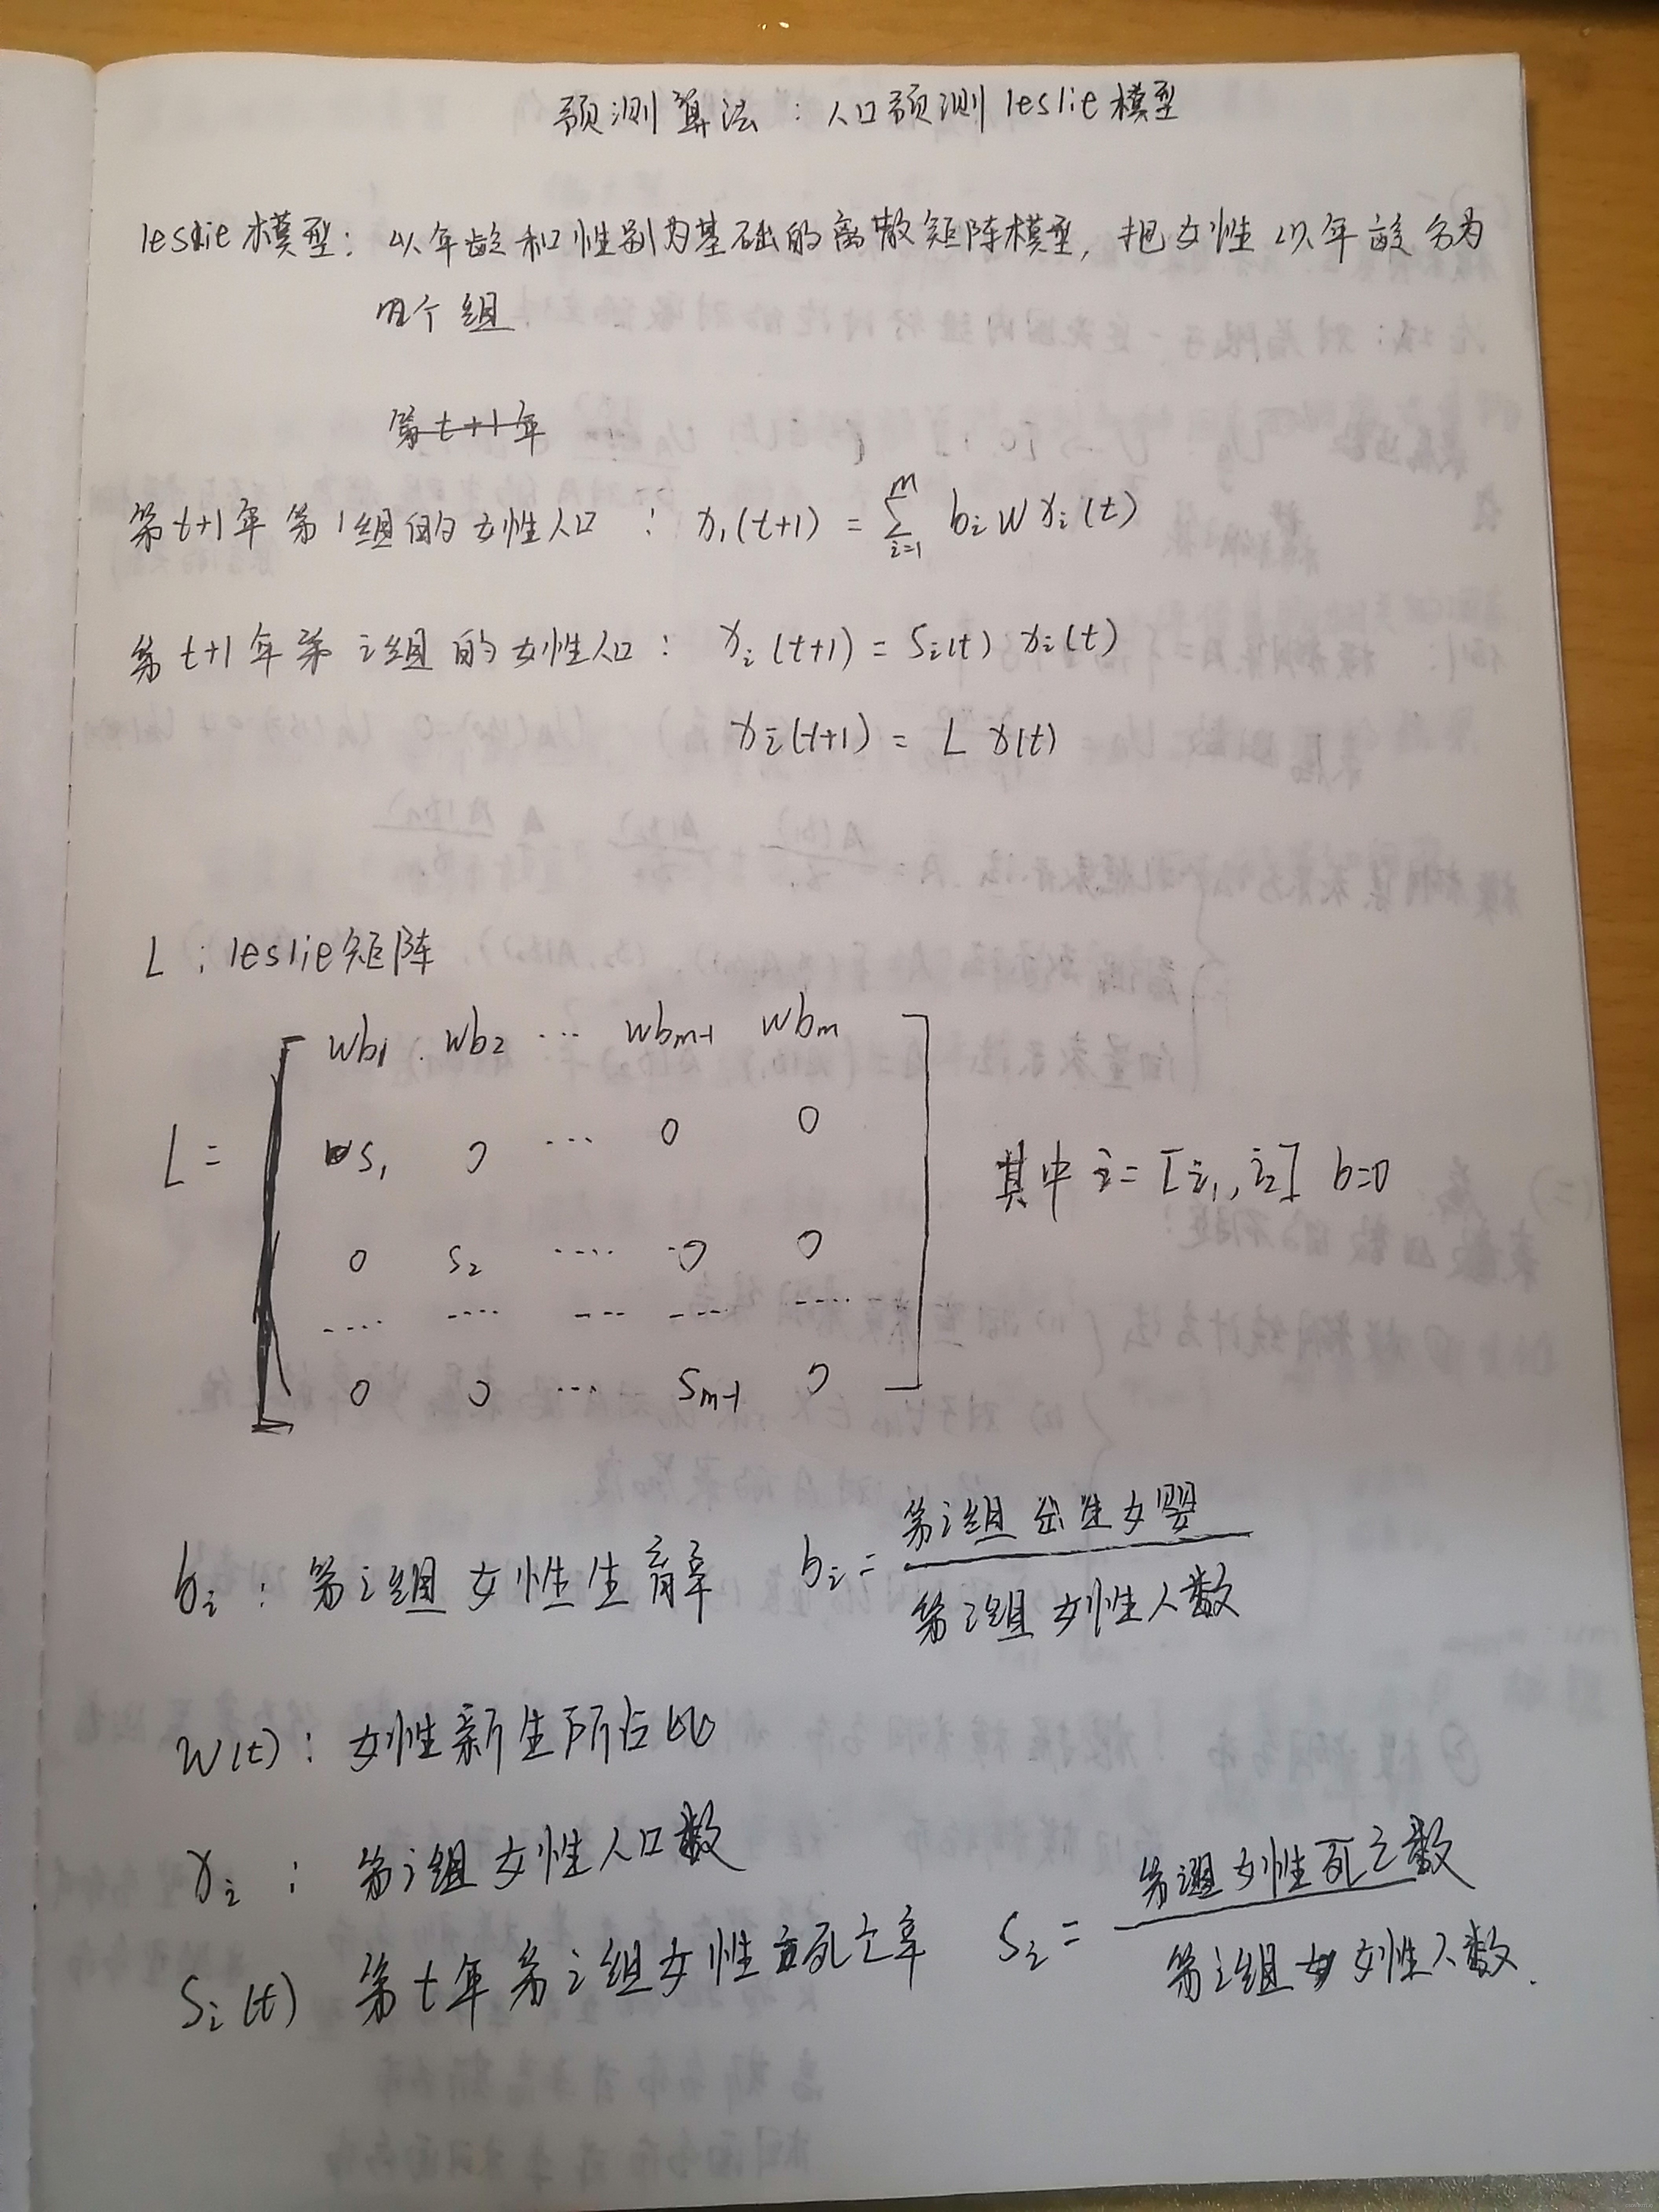 预测算法：人口预测leslie模型
leslie模型：以年龄和性别为基础的离散矩阵模型，把女性以年龄分为
四个组
第t+1年
第t+1年第1组的女性人口：x₁(t+1) = Σ_{i=1}^{m} bᵢwxᵢ(t)
第t+1年第i组的女性人口：xᵢ(t+1) = Sᵢ(t) xᵢ(t)
xᵢ(t+1) = L x(t)
L：leslie矩阵
wb₁ wb₂ … wb_{m-1} wb_m
L = s₁ 0 … 0 0 其中i=[i₁,i₂] b=0
0 s₂ …. 0 0
.... .... --- ---- ----
0 0 … s_{m-1} 0
bᵢ：第i组女性生育率 bᵢ = 第i组出生女婴 / 第i组女性人数
w(t)：女性新生所占比
xᵢ：第i组女性人口数
Sᵢ(t) 第t年第i组女性死亡率 Sᵢ = 第i组女性死亡数 / 第i组女性人数.